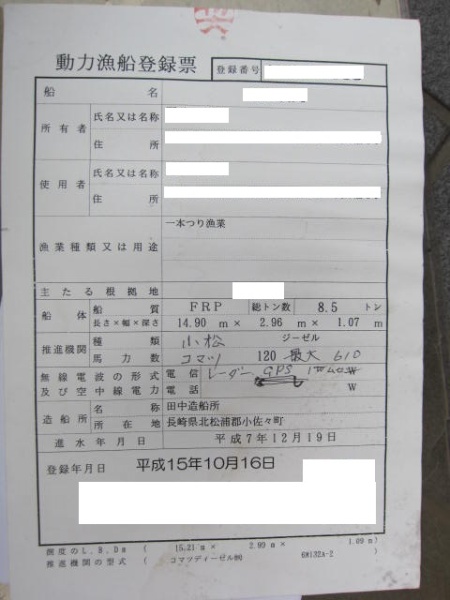 動力漁船登録票
登録番号
船名
所有者 氏名又は名称
住所
使用者 氏名又は名称
住所
漁業種類又は用途 一本つり漁業
主たる根拠地
船体 船質 FRP 総トン数 8.5 トン
長さ×幅×深さ 14.90 m × 2.96 m × 1.07 m
推進機関 種類 小松 ジーゼル
馬力数 コマツ 120 最大 610
無線電波の形式 電信 レーダー GPS W
及び空中線電力 電話 W
造船所 名称 田中造船所
所在地 長崎県北松浦郡小佐々町
進水年月日 平成7年12月19日
登録年月日 平成15年10月16日
測度のL.B.Dm ( 15.21 m × 2.99 m × 1.09 m)
推進機関の型式 ( コマツディーゼル㈱ 6M132A-2 )